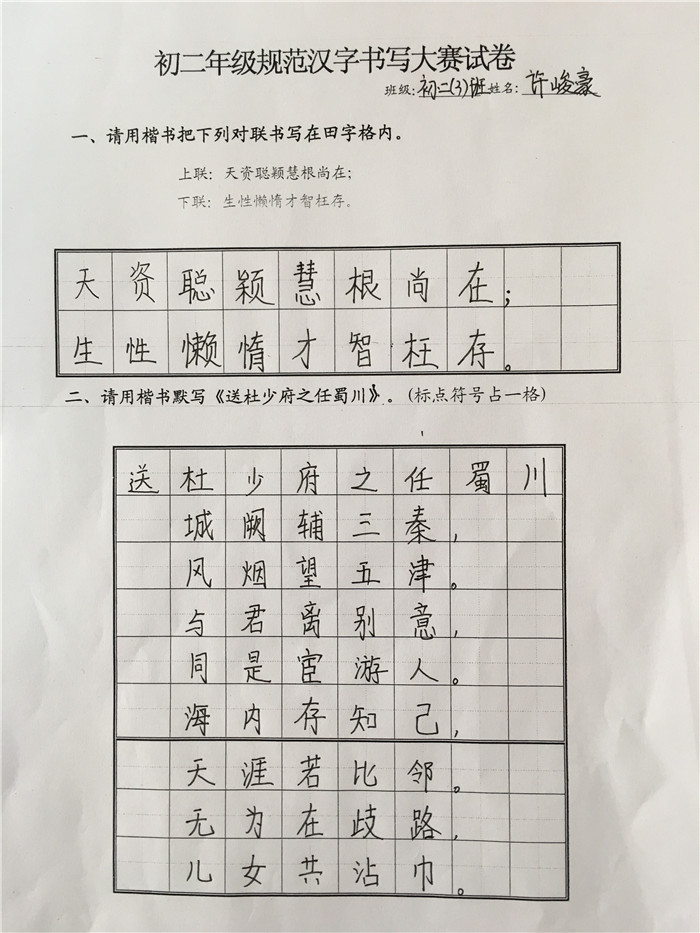 初二年级规范汉字书写大赛试卷
班级:初二(3)班姓名:许峻豪
一、请用楷书把下列对联书写在田字格内。
上联：天资聪颖慧根尚在;
下联：生性懒惰才智枉存。
天资聪颖慧根尚在;
生性懒惰才智枉存。
二、请用楷书默写《送杜少府之任蜀川》。(标点符号占一格)
送杜少府之任蜀川
城阙辅三秦,
风烟望五津。
与君离别意,
同是宦游人。
海内存知己,
天涯若比邻。
无为在歧路,
儿女共沾巾。